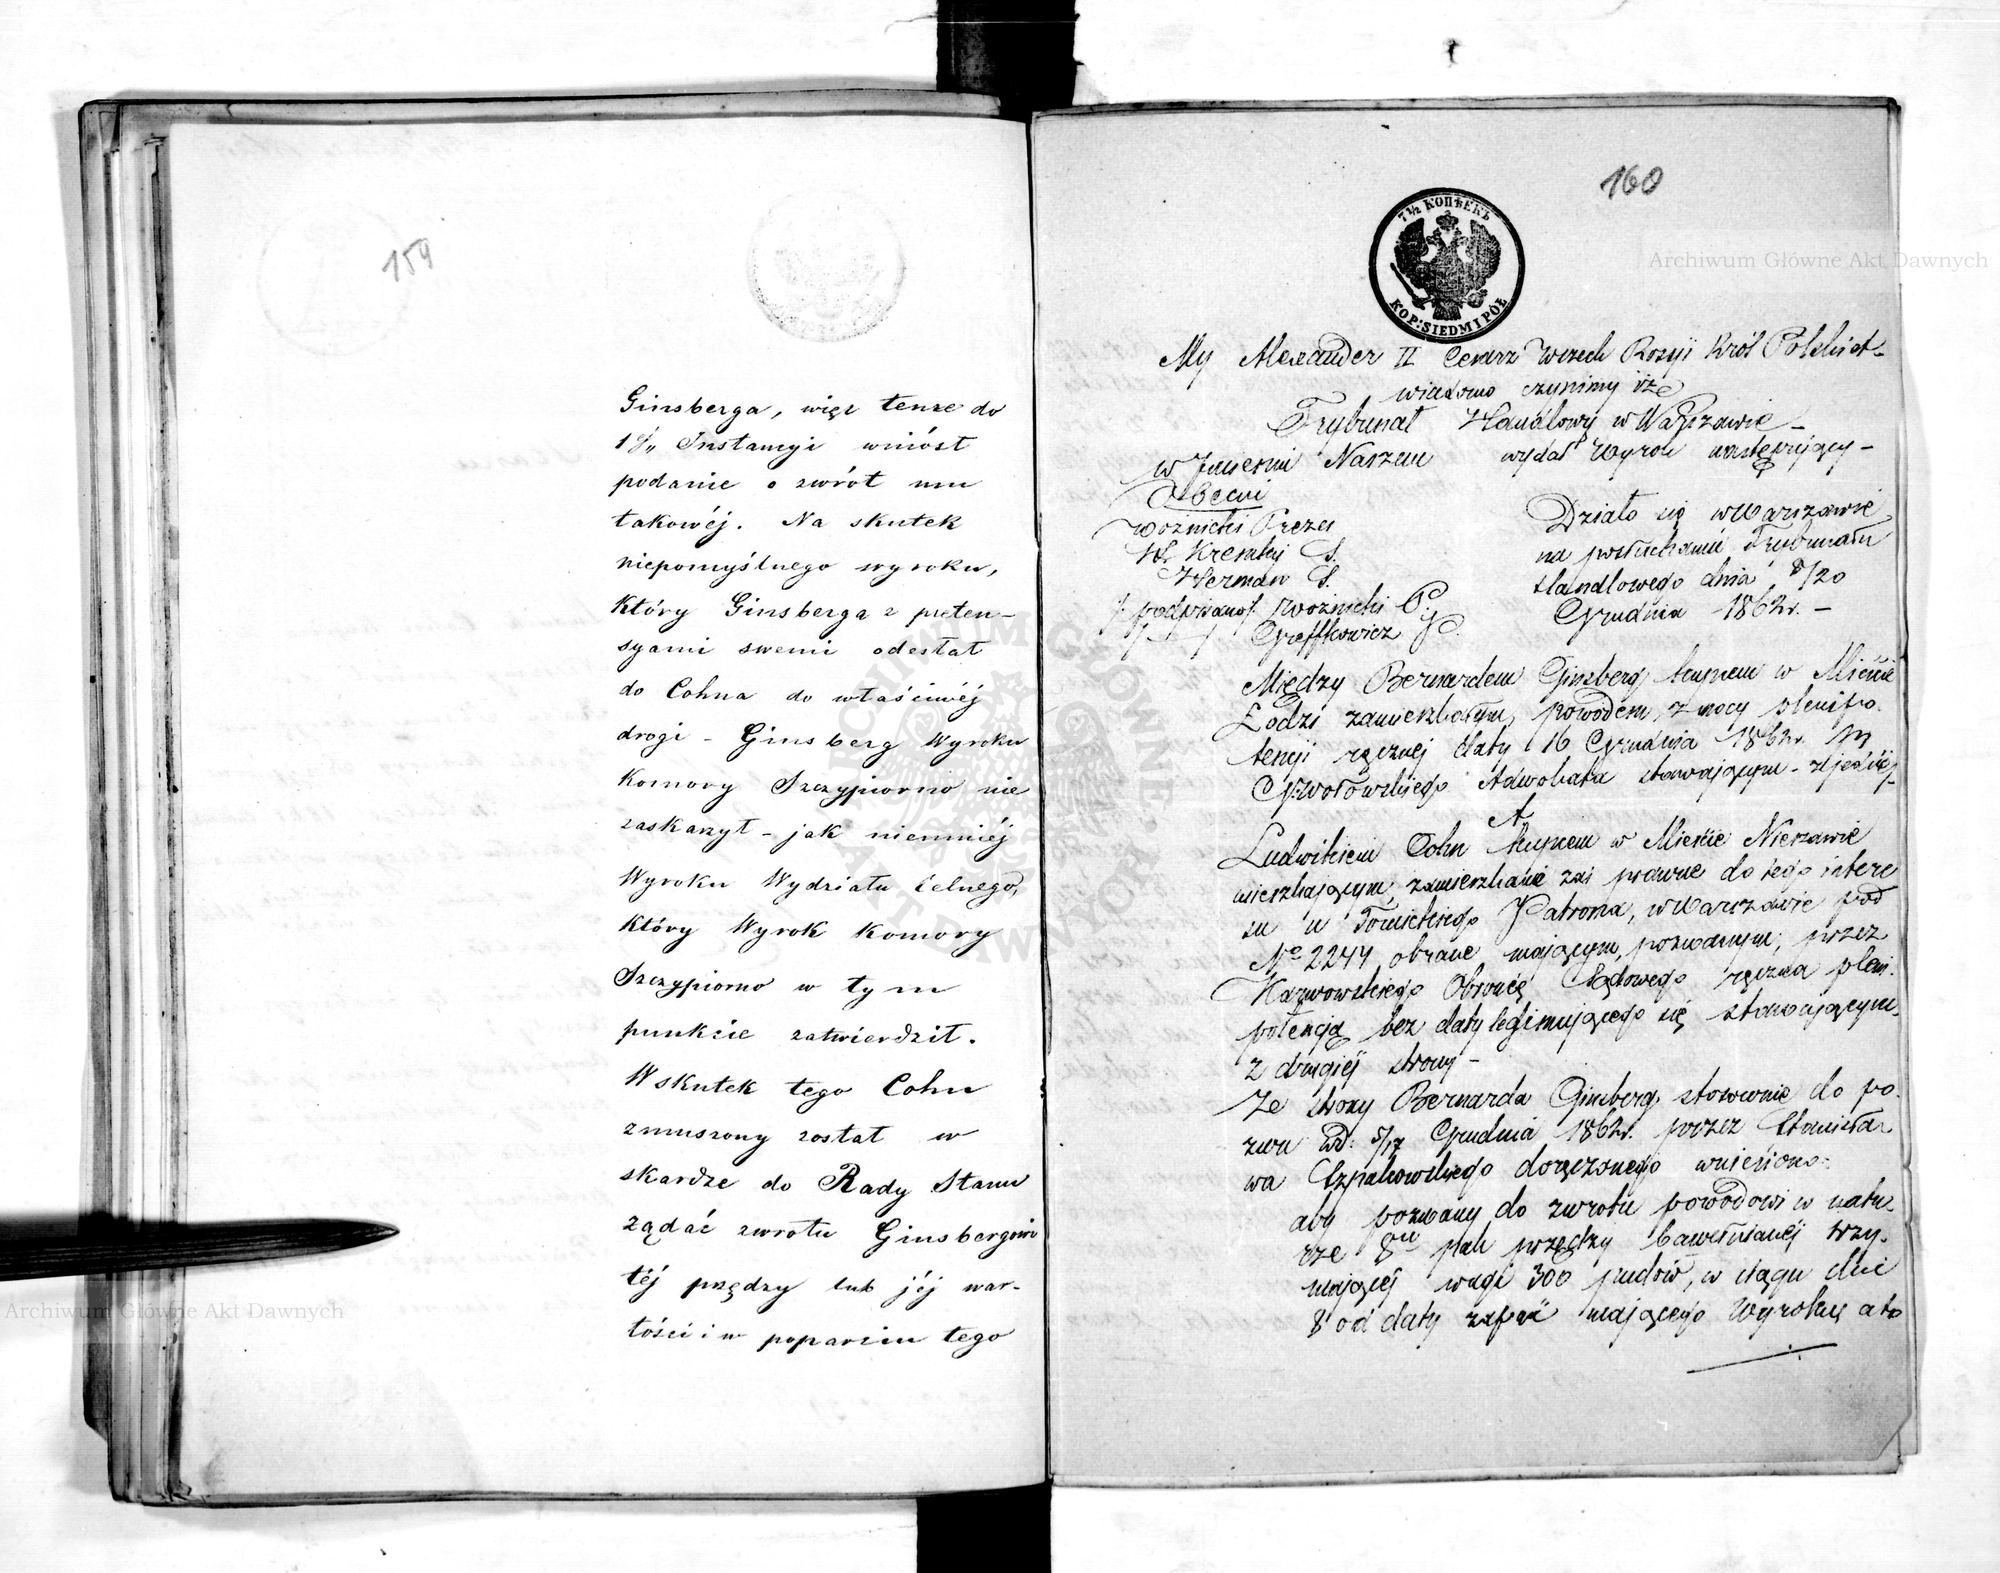 159
Ginsberga, więc tenze do
1éj Instancyi wniósł
podanie o zwrót mu
takowéj. Na skutek
niepomyślnego wyroku,
który Ginsberga z preten-
syami swemi odesłał
do Cohna do właściwéj
drogi - Ginsberg Wyroku
Komory Szczypiorno nie
zaskarzył - jak niemniéj
Wyroku Wydziału Celnego,
który Wyrok Komory
Szczypiorno w tym
punkcie zatwierdził.
Wskutek tego Cohn
zmuszony został w
skardze do Rady Stanu
żądać zwrotu Ginsbergowi
téj przędzy lub jéj war-
tości i w poparciu tego
160
7½ КОПѢЕКЪ
KOP: SIEDM I PÓŁ
My Alexander II Cesarz Wszech Rosyji Król Polski et-
wiadomo czynimy iże
Trybunał Handlowy w Warszawie -
w Imieniu Naszem wydał Wyrok następujący -
Obecni
Woźnicki Prezes
Herman S.
/podpisano/ Woźnicki P.
Działo się w Warszawie
na posłuchaniu Trybunału
Handlowego dnia 8/20
Grudnia 1862 r. -
Między Bernardem Ginsberg kupcem w Mieście
Łodzi zamieszkałym, powodem, z mocy plenipo-
tencyi ręcznej daty 16 Grudnia 1862 r.
Adwokata stawającym - z jednéj
A
Ludwikiem Cohn kupcem w Mieście Nieszawie
mieszkającym, zamieszkanie zaś prawne do tego intere
su u Tomickiego Patrona, w Warszawie pod
No 2244 obrane mającym, pozwanym, przez
Karwowskiego Obrońcę Sądowego ręczną pleni-
potencją bez daty legimującego się stawającym
z drugiéj strony -
Ze strony Bernarda Ginsberg stosownie do po-
zwu z d: 5/17 Grudnia 1862 r. przez Stanisła-
wa Szpakowskiego doręczonego wniesiono:
aby pozwany do zwrotu powodowi w natu-
rze 8u pak przędzy bawełnianéj trzy-
mającej wagi 300 pudów, w ciągu dni
8 od daty zapaść mającego Wyroku, a to
Archiwum Główne Akt Dawnych
Archiwum Główne Akt Dawnych
ARCHIWUM GŁÓWNE AKT DAWNYCH